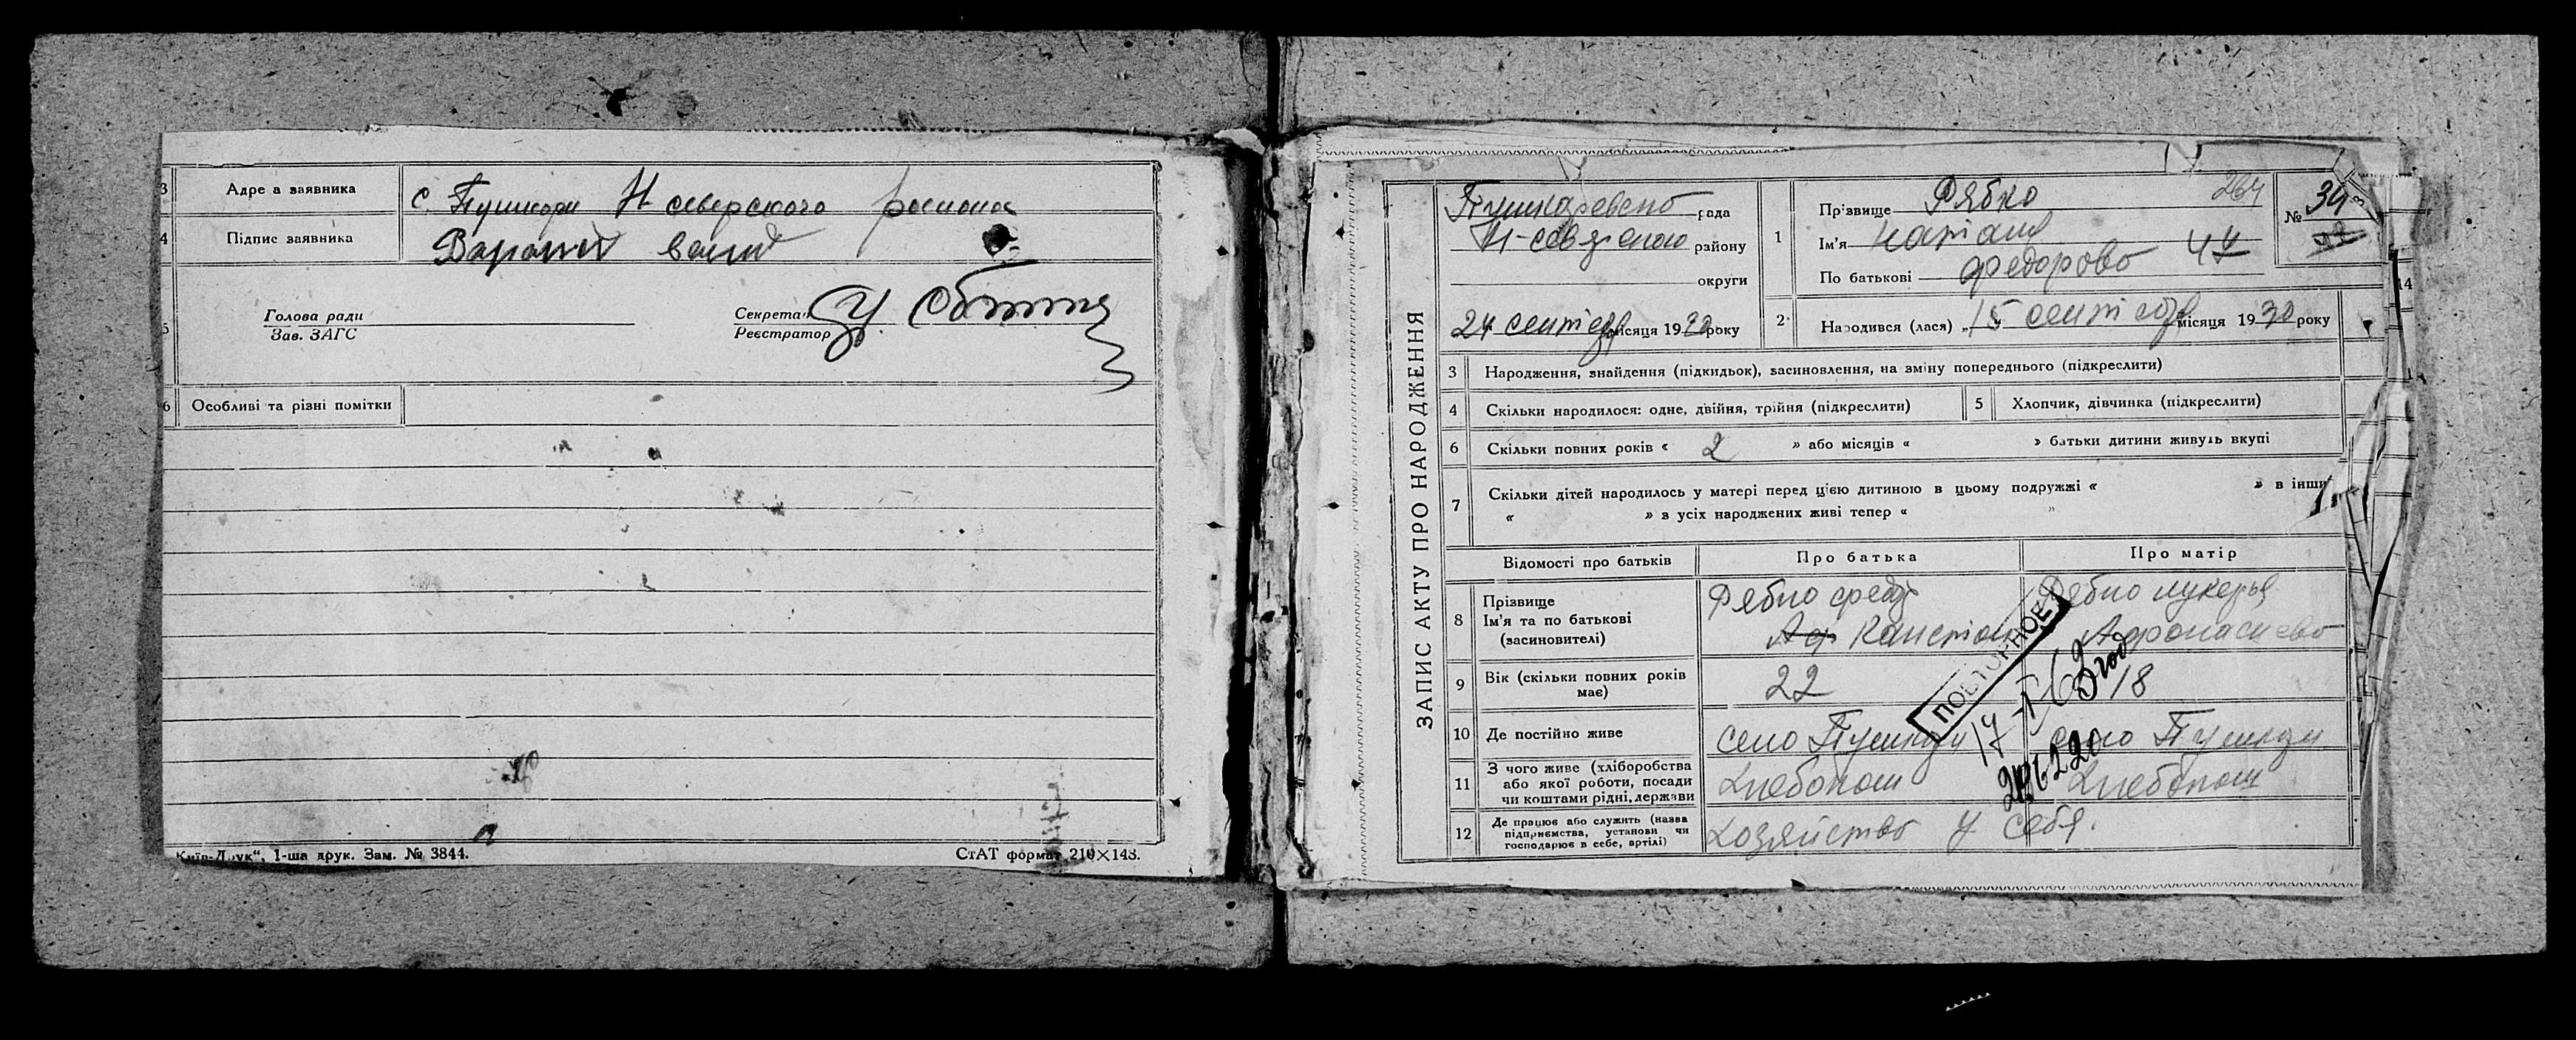 Адре а заявника
с. Пушкари Н северского
Підпис заявника
Голова ради
Зав. ЗАГС
Секретар
Реєстратор
Особливі та різні помітки
1-ша друк. Зам. № 3844.
СтАТ формат 210×148.
ЗАПИС АКТУ ПРО НАРОДЖЕННЯ
рада
району
округи
24 сентября місяця 19 року
1
Прізвище Рябко 264
Ім'я
По батькові Федорово 47
№ 34
2
Народився (лася) „15 сентября місяця 1930 року
3 Народження, знайдення (підкидьок), засиновлення, на зміну попереднього (підкреслити)
4 Скільки народилося: одне, двійня, трійня (підкреслити)
5 Хлопчик, дівчинка (підкреслити)
6 Скільки повних років « 2 » або місяців « » батьки дитини живуть вкупі
7 Скільки дітей народилось у матері перед цією дитиною в цьому подружжі « » в інши
« » з усіх народжених живі тепер « »
Відомості про батьків
Про батька
Про матір
8 Прізвище
Ім'я та по батькові
(засиновителі)
Рябко
Рябко Лукерья
Афонасиево
9 Вік (скільки повних років
має)
22
18
10 Де постійно живе
село Пушкари
село Пушкари
11 З чого живе (хліборобства
або якої роботи, посади
чи коштами рідні, держави
Хлебопаш
Хлебопаш
12 Де працює або служить (назва
підприємства, установи чи
господарює в себе, артілі)
Хозяйство у себя.
ПОВТОРНОЕ